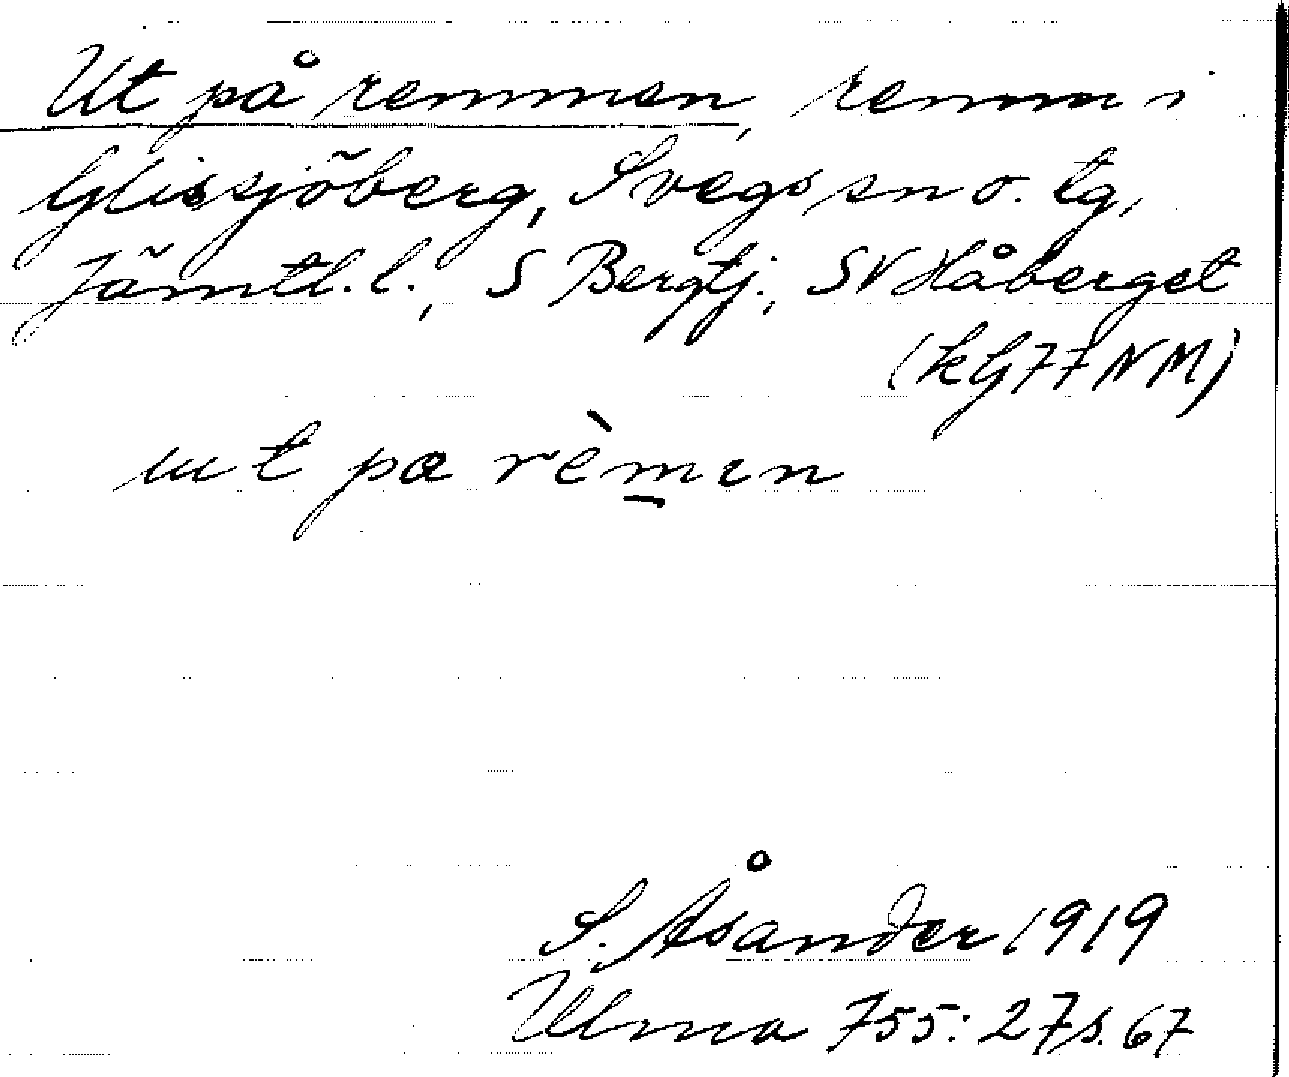 Ut på remmen, remma i
Glissjöberg, Svegs sn o. tg,
Jämtl. l., S Bergtj., SV Håberget
(kG77NM)
ut pa rèmen
S. Åsander 1919
Ulma 755:27 s. 67